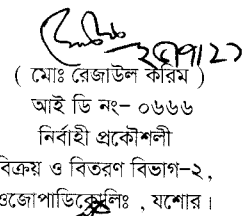 ( মোঃ রেজাউল করিম )
আই ডি নং- ০৬৬৬
নির্বাহী প্রকৌশলী
বিক্রয় ও বিতরণ বিভাগ-২,
ওজোপাডিকোলিঃ , যশোর ।